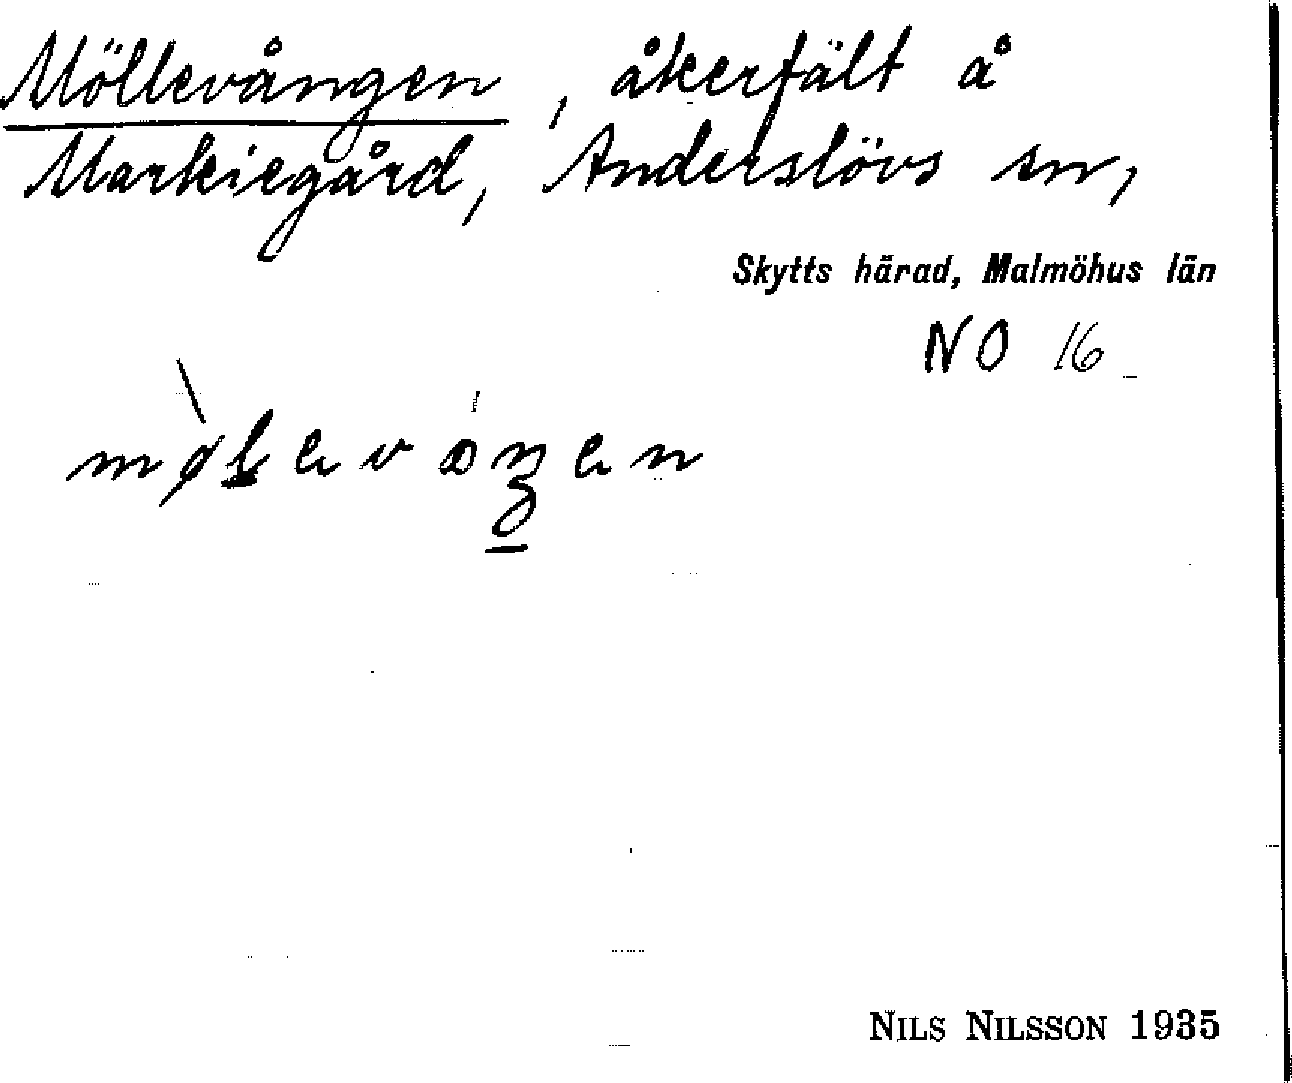 Möllevången, åkerfält å
Markiegård, Anderslövs sn,
Skytts härad, Malmöhus län
NO 16
NILS NILSSON 1935